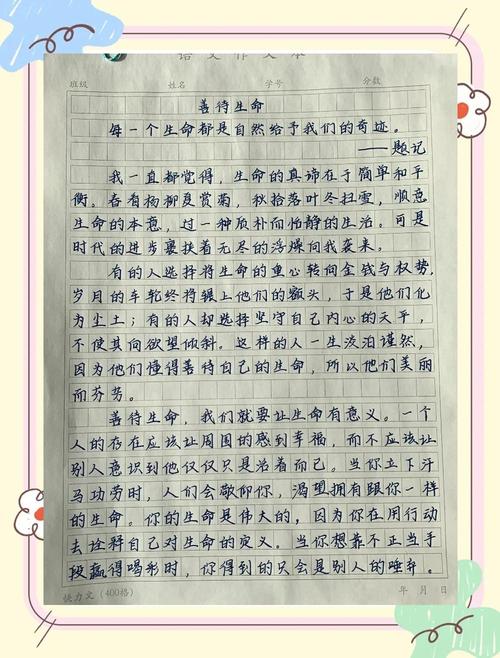 语文作文本
班级 姓名 学号 分数
善待生命
每一个生命都是自然给予我们的奇迹。
——题记
我一直都觉得,生命的真谛在于简单和平
衡。春看杨柳夏赏菊,秋拾落叶冬扫雪,顺意
生命的本意,过一种质朴而恬静的生活。可是
时代的进步裹挟着无尽的浮燥向我袭来。
有的人选择将生命的重心转向金钱与权势,
岁月的车轮终将辗上他们的额头,于是他们化
为尘土;有的人却选择坚守自己内心的天平,
不使其向欲望倾斜。这样的人一生淡泊谨然,
因为他们懂得善待自己的生命,所以他们美丽
而芬芳。
善待生命,我们就要让生命有意义。一个
人的存在应该让周围的感到幸福,而不应该让
别人意识到他仅仅只是活着而已。当你立下汗
马功劳时,人们会敬仰你,渴望拥有跟你一样
的生命。你的生命是伟大的,因为你在用行动
去诠释自己对生命的定义。当你想靠不正当手
段赢得喝彩时,你得到的只会是别人的唾弃。
快力文(400格) 年 月 日